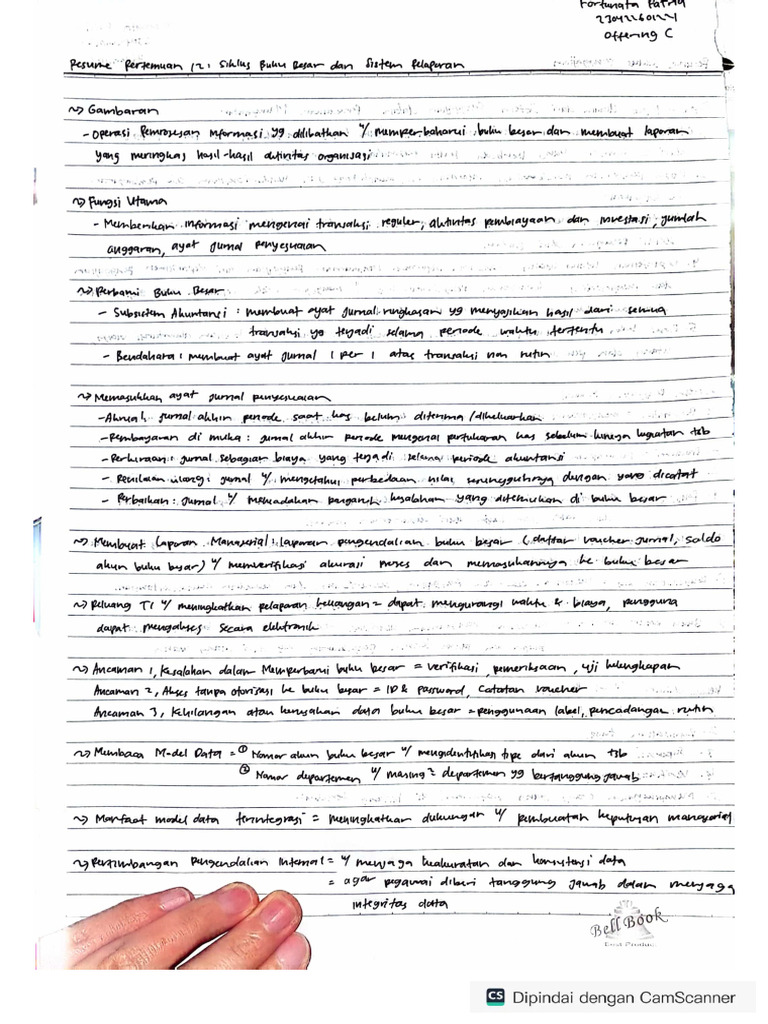 Fortunata
Offering C
Resume Pertemuan 12 : Siklus Buku Besar dan Sistem Pelaporan
~> Gambaran
- Operasi Pemrosesan Informasi yg dilibatkan u/ memperbaharui buku besar dan membuat laporan
yang meringkas hasil-hasil aktivitas organisasi
~> Fungsi Utama
- Memberikan informasi mengenai transaksi reguler, aktivitas pembiayaan dan investasi, jumlah
anggaran, ayat jurnal penyesuaian
~> Perbarui Buku Besar
- Subsistem Akuntansi : membuat ayat jurnal ringkasan yg menyajikan hasil dari semua
transaksi yg terjadi selama periode waktu tertentu
- Bendahara : membuat ayat jurnal 1 per 1 atas transaksi non rutin
~> Memasukkan ayat jurnal penyesuaian
- Akrual, jurnal akhir periode saat kas belum diterima/dikeluarkan
- Pembayaran di muka : jurnal akhir periode mengenai pertukaran kas sebelum kinerja kegiatan tsb
- Perkiraan : jurnal sebagian biaya yang terjadi selama periode akuntansi
- Penilaian ulang : jurnal u/ mengetahui perbedaan nilai sesungguhnya dengan yang dicatat
- Perbaikan : jurnal u/ meniadakan pengaruh kesalahan yang ditemukan di buku besar
~> Membuat Laporan Manajerial : laporan pengendalian buku besar (daftar voucher jurnal, saldo
akun buku besar) u/ memverifikasi akurasi proses dan memasukannya ke buku besar
~> Peluang TI u/ meningkatkan pelaporan keuangan = dapat mengurangi waktu & biaya, pengguna
dapat mengakses secara elektronik
~> Ancaman 1, Kesalahan dalam Memperbarui buku besar = verifikasi, pemeriksaan, uji kelengkapan
Ancaman 2, Akses tanpa otorisasi ke buku besar = ID & Password, Catatan voucher
Ancaman 3, Kehilangan atau kerusakan data buku besar = penggunaan label, pencadangan rutin
~> Membaca Model Data = ① Nomor akun buku besar u/ mengidentifikan tipe dari akun tsb
② Nomor departemen u/ masing² departemen yg bertanggung jawab
~> Manfaat model data terintegrasi = meningkatkan dukungan u/ pembuatan keputusan manajerial
~> Pertimbangan Pengendalian Internal = u/ menjaga keakuratan dan konsistensi data
= agar pegawai diberi tanggung jawab dalam menjaga
integritas data
Bell Book
CS Dipindai dengan CamScanner